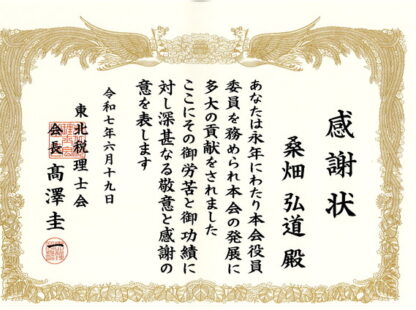 感謝状
桑畑 弘道 殿
あなたは永年にわたり本会役員
委員を務められ本会の発展に
多大の貢献をされました
ここにその御労苦と御功績に
対し深甚なる敬意と感謝の
意を表します
令和七年六月十九日
東北税理士会
会長 髙澤圭一